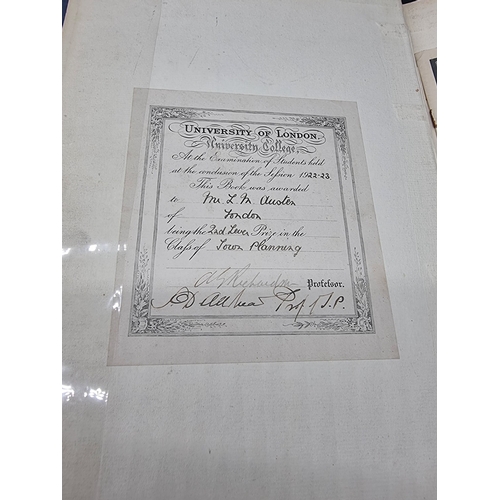 UNIVERSITY OF LONDON.
University College.
At the Examination of Students held
at the conclusion of the Session 1922-23
This Book was awarded
to Mr. L. M. Austen
of London
being the 2nd Lever Prize in the
Class of Town Planning
A E Richardson Professor.
Prof. T.P.